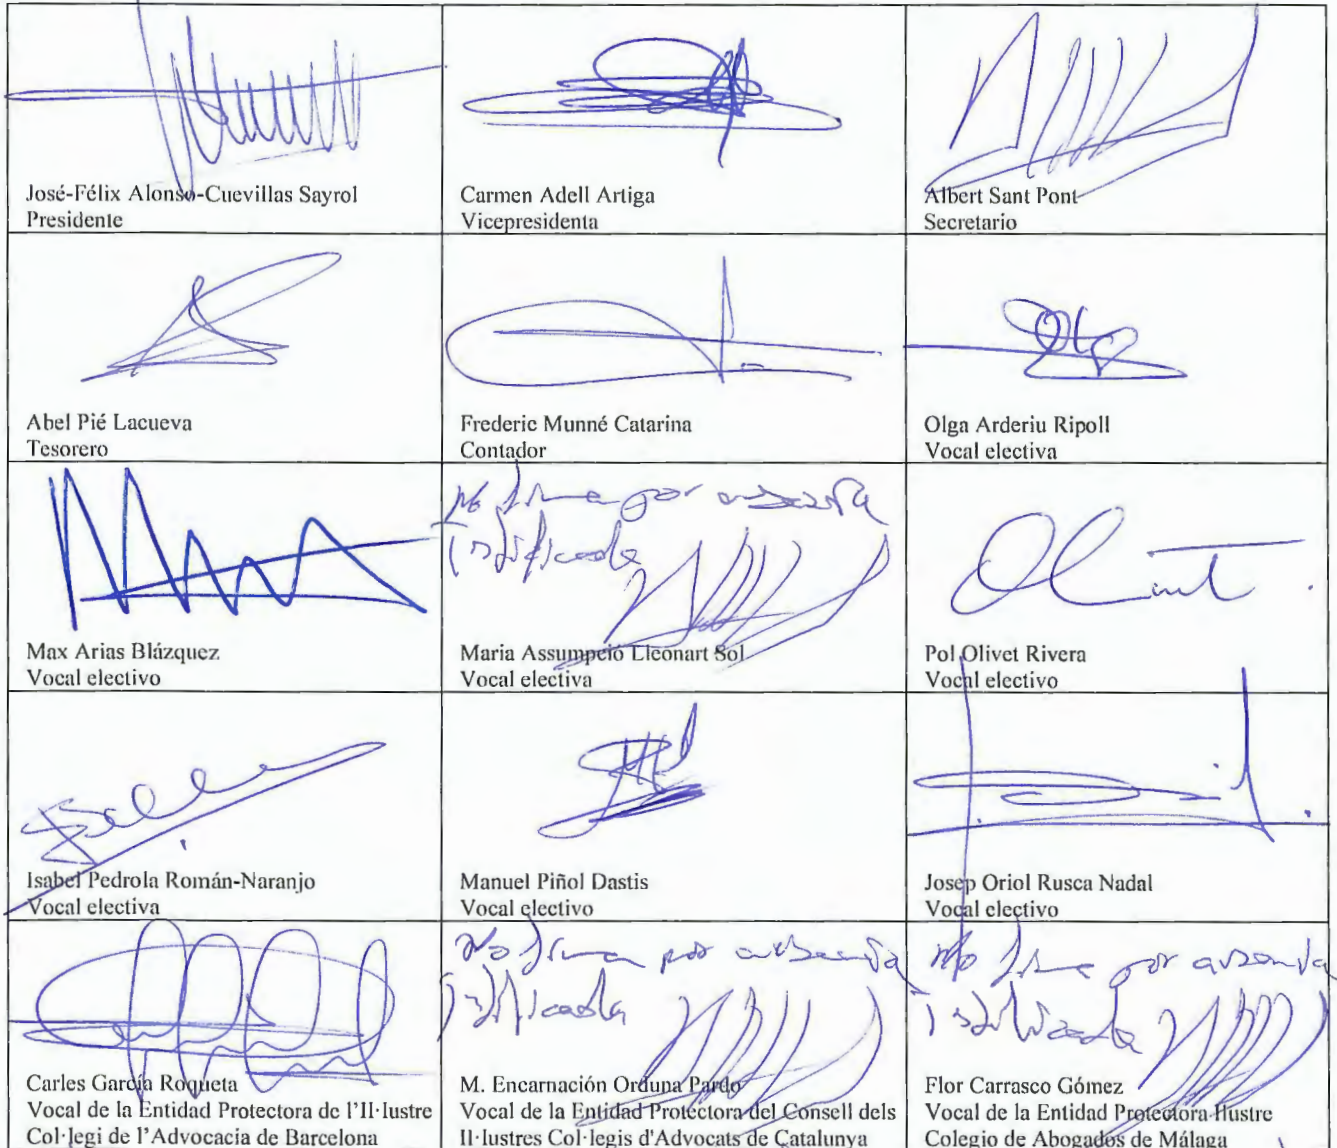 José-Félix Alonso-Cuevillas Sayrol
Presidente
Carmen Adell Artiga
Vicepresidenta
Albert Sant Pont
Secretario
Abel Pié Lacueva
Tesorero
Frederic Munné Catarina
Contador
Olga Arderiu Ripoll
Vocal electiva
Max Arias Blázquez
Vocal electivo
No firma por ausencia
justificada
Maria Assumpció Lleonart Sol
Vocal electiva
Pol Olivet Rivera
Vocal electivo
Isabel Pedrola Román-Naranjo
Vocal electiva
Manuel Piñol Dastis
Vocal electivo
Josep Oriol Rusca Nadal
Vocal electivo
Carles García Roqueta
Vocal de la Entidad Protectora de l'Il·lustre
Col·legi de l'Advocacia de Barcelona
No firma por ausencia
justificada
M. Encarnación Orduna Pardo
Vocal de la Entidad Protectora del Consell dels
Il·lustres Col·legis d'Advocats de Catalunya
No firma por ausencia
justificada
Flor Carrasco Gómez
Vocal de la Entidad Protectora Ilustre
Colegio de Abogados de Málaga